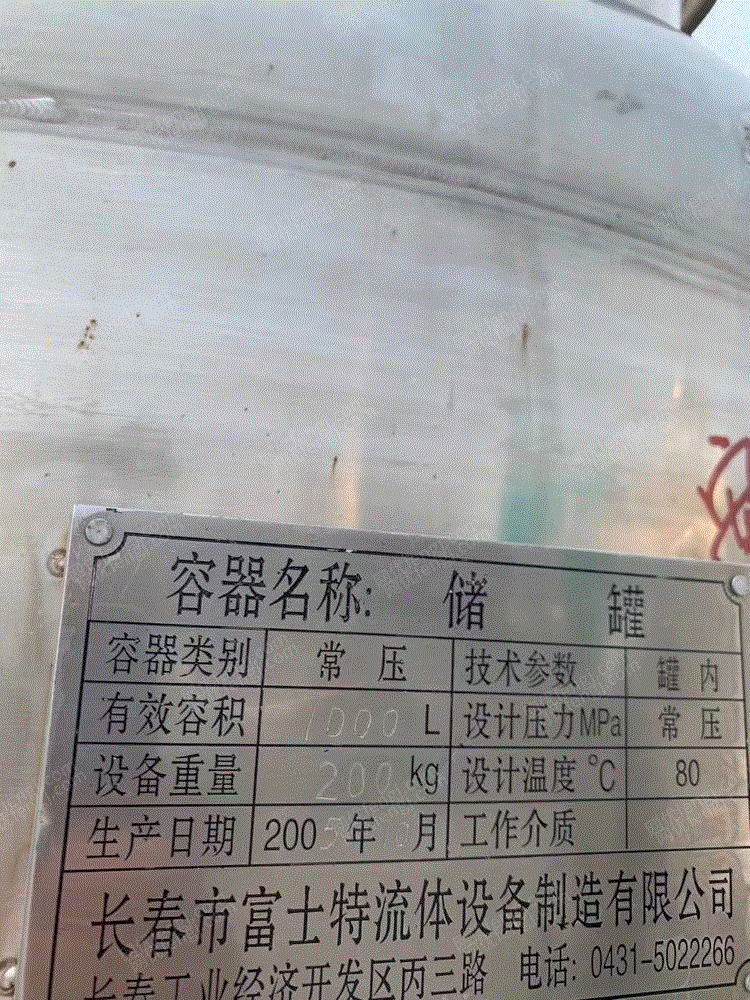 容器名称: 储 罐
容器类别 常 压 技术参数 罐 内
有效容积 1000 L 设计压力MPa 常 压
设备重量 200 kg 设计温度℃ 80
生产日期 200 年 月 工作介质
长春市富士特流体设备制造有限公司
长春工业经济开发区丙三路 电话: 0431-5022266